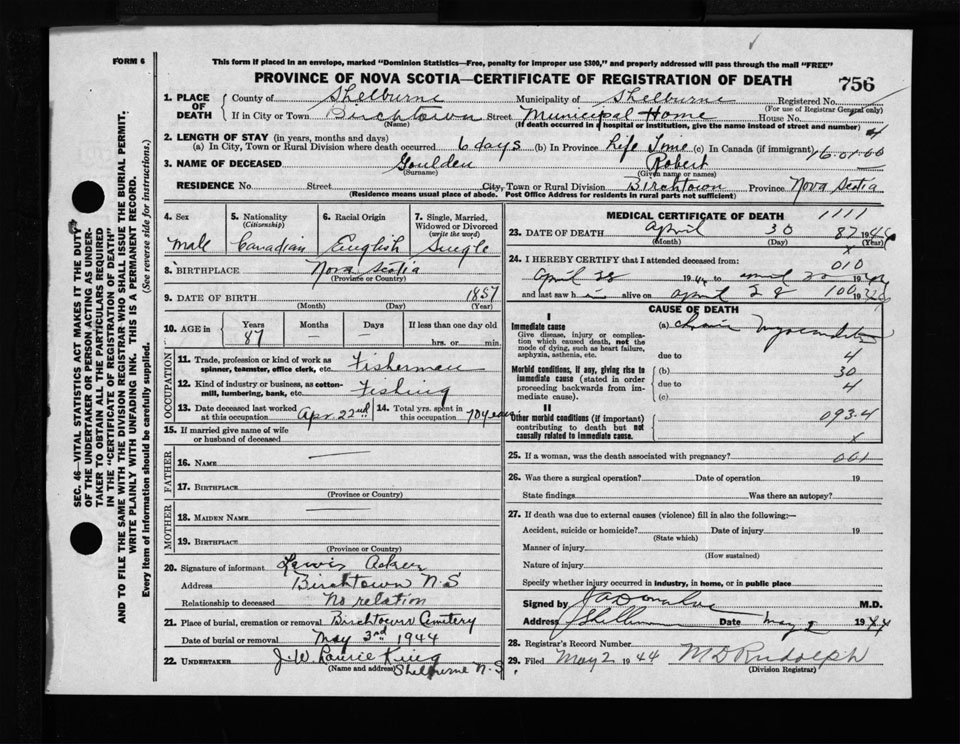 FORM 6
This form if placed in an envelope, marked "Dominion Statistics—Free, penalty for improper use $300," and properly addressed will pass through the mail "FREE"
PROVINCE OF NOVA SCOTIA—CERTIFICATE OF REGISTRATION OF DEATH
756
1. PLACE OF DEATH
County of Shelburne Municipality of Shelburne Registered No.
(For use of Registrar General only)
If in City or Town Birchtown Street Municipal Home House No.
(Name) (If death occurred in a hospital or institution, give the name instead of street and number)
2. LENGTH OF STAY (in years, months and days)
(a) In City, Town or Rural Division where death occurred 6 days (b) In Province Life Time (c) In Canada (if immigrant) 16.01.00
3. NAME OF DECEASED Goulden Robert
(Surname) (Given name or names)
RESIDENCE No. Street City, Town or Rural Division Birchtown Province Nova Scotia
(Residence means usual place of abode. Post Office Address for residents in rural parts not sufficient)
4. Sex
Male
5. Nationality
(Citizenship)
Canadian
6. Racial Origin
English
7. Single, Married, Widowed or Divorced
(write the word)
Single
8. BIRTHPLACE Nova Scotia
(Province or Country)
9. DATE OF BIRTH 1857
(Month) (Day) (Year)
10. AGE in
Years Months Days If less than one day old
87 — — hrs. or min.
OCCUPATION
11. Trade, profession or kind of work as spinner, teamster, office clerk, etc. Fisherman
12. Kind of industry or business, as cotton-mill, lumbering, bank, etc. Fishing
13. Date deceased last worked at this occupation Apr. 22nd
14. Total yrs. spent in this occupation 70 years
15. If married give name of wife or husband of deceased
FATHER
16. NAME
17. BIRTHPLACE
(Province or Country)
MOTHER
18. MAIDEN NAME
19. BIRTHPLACE
(Province or Country)
20. Signature of informant Lewis Acker
Address Birchtown N.S
Relationship to deceased No relation
21. Place of burial, cremation or removal Birchtown Cemetery
Date of burial or removal May 3rd 1944
22. UNDERTAKER J.W.
(Name and address) Shelburne N.S
MEDICAL CERTIFICATE OF DEATH
1111
23. DATE OF DEATH April 30 1944
87
(Month) (Day) (Year)
x
24. I HEREBY CERTIFY that I attended deceased from:
010
April 28 194
and last saw h im alive on April 28
100
CAUSE OF DEATH
I
Immediate cause
Give disease, injury or complication which caused death, not the mode of dying, such as heart failure, asphyxia, asthenia, etc.
(a) Chronic Myocarditis
due to
4
Morbid conditions, if any, giving rise to immediate cause (stated in order proceeding backwards from immediate cause).
(b)
30
due to
4
(c)
II
Other morbid conditions (if important) contributing to death but not causally related to immediate cause.
093.4
x
25. If a woman, was the death associated with pregnancy? 001
26. Was there a surgical operation? Date of operation 19
State findings Was there an autopsy?
27. If death was due to external causes (violence) fill in also the following:—
Accident, suicide or homicide? Date of injury 19
(State which)
Manner of injury
(How sustained)
Nature of injury
Specify whether injury occurred in industry, in home, or in public place
Signed by M.D.
Address Date May 2 1944
28. Registrar's Record Number
29. Filed May 2 1944 M D Rudolph
(Division Registrar)
SEC. 46—VITAL STATISTICS ACT MAKES IT THE DUTY
OF THE UNDERTAKER OR PERSON ACTING AS UNDER-
TAKER TO OBTAIN ALL THE PARTICULARS REQUIRED
IN THE "CERTIFICATE OF REGISTRATION OF DEATH"
AND TO FILE THE SAME WITH THE DIVISION REGISTRAR WHO SHALL ISSUE THE BURIAL PERMIT.
WRITE PLAINLY WITH UNFADING INK. THIS IS A PERMANENT RECORD.
Every item of information should be carefully supplied. (See reverse side for instructions.)